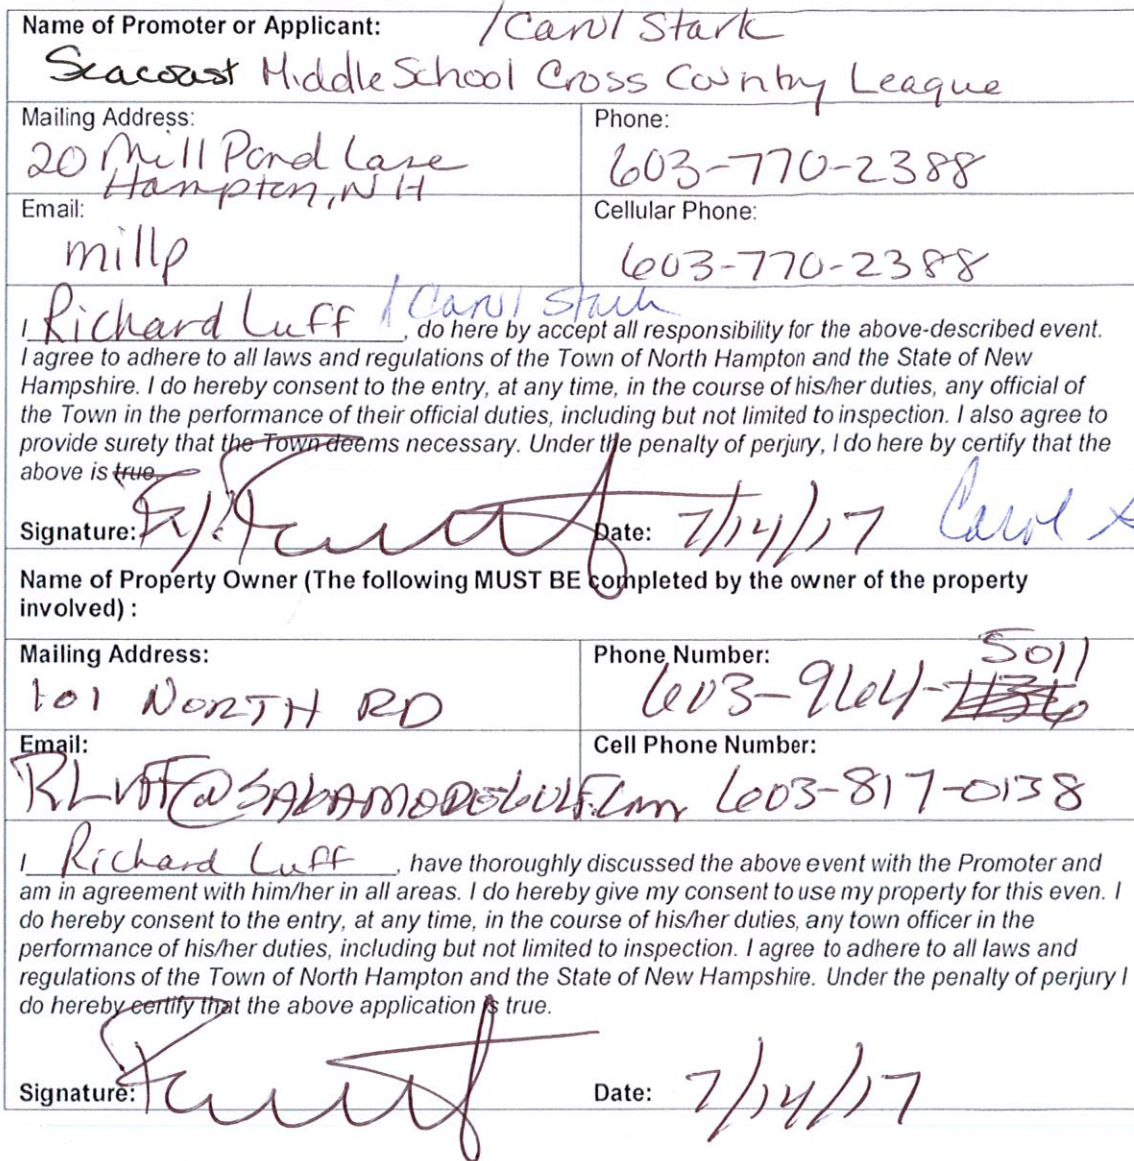 Name of Promoter or Applicant: / Carol Stark
Seacoast Middle School Cross Country League
Mailing Address:
20 Mill Pond Lane
Hampton, NH
Phone:
603-770-2388
Email:
millp
Cellular Phone:
603-770-2388
I Richard Luff / Carol Stark, do here by accept all responsibility for the above-described event.
I agree to adhere to all laws and regulations of the Town of North Hampton and the State of New
Hampshire. I do hereby consent to the entry, at any time, in the course of his/her duties, any official of
the Town in the performance of their official duties, including but not limited to inspection. I also agree to
provide surety that the Town deems necessary. Under the penalty of perjury, I do here by certify that the
above is true.
Signature: Date: 7/14/17 Carol S
Name of Property Owner (The following MUST BE completed by the owner of the property
involved) :
Mailing Address:
101 NORTH RD
Phone Number:
603-964-5011
Email:
RLuff@SAGAMOREGOLF.Com
Cell Phone Number:
603-817-0138
I Richard Luff, have thoroughly discussed the above event with the Promoter and
am in agreement with him/her in all areas. I do hereby give my consent to use my property for this even. I
do hereby consent to the entry, at any time, in the course of his/her duties, any town officer in the
performance of his/her duties, including but not limited to inspection. I agree to adhere to all laws and
regulations of the Town of North Hampton and the State of New Hampshire. Under the penalty of perjury I
do hereby certify that the above application is true.
Signature: Date: 7/14/17